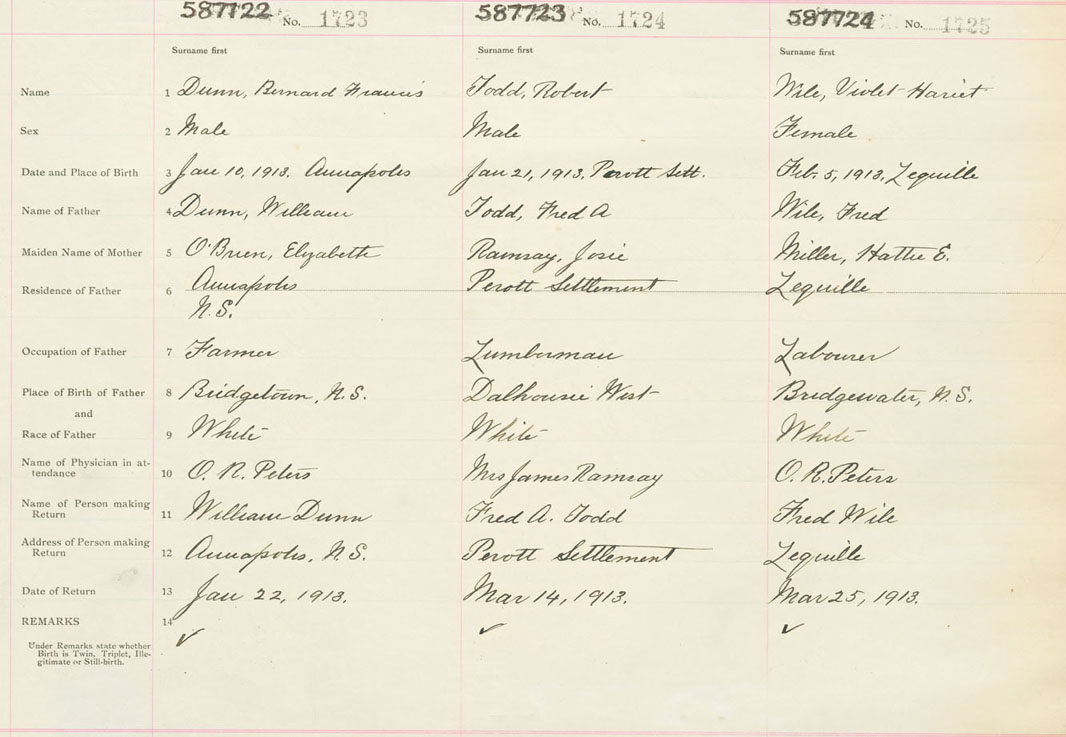 587722 No. 1723 587723 No. 1724 587724 No. 1725
Surname first Surname first Surname first
Name 1 Dunn, Bernard Francis Todd, Robert Wile, Violet Hariet
Sex 2 Male Male Female
Date and Place of Birth 3 Jan 10, 1913. Annapolis Jan 21, 1913, Perott Sett. Feb. 5, 1913, Lequille
Name of Father 4 Dunn, William Todd, Fred A Wile, Fred
Maiden Name of Mother 5 O'Brien, Elyabeth Ramsay, Josie Miller, Hattie E.
Residence of Father 6 Annapolis Perott Settlement Lequille
N.S.
Occupation of Father 7 Farmer Lumberman Labourer
Place of Birth of Father 8 Bridgetown, N.S. Dalhousie West Bridgewater, N.S.
and
Race of Father 9 White White White
Name of Physician in at-
tendance 10 O. R. Peters Mrs James Ramsay O. R. Peters
Name of Person making
Return 11 William Dunn Fred A. Todd Fred Wile
Address of Person making
Return 12 Annapolis, N.S. Perott Settlement Lequille
Date of Return 13 Jan 22, 1913. Mar 14, 1913. Mar 25, 1913.
REMARKS 14
✓ ✓ ✓
Under Remarks state whether
Birth is Twin, Triplet, Ille-
gitimate or Still-birth.